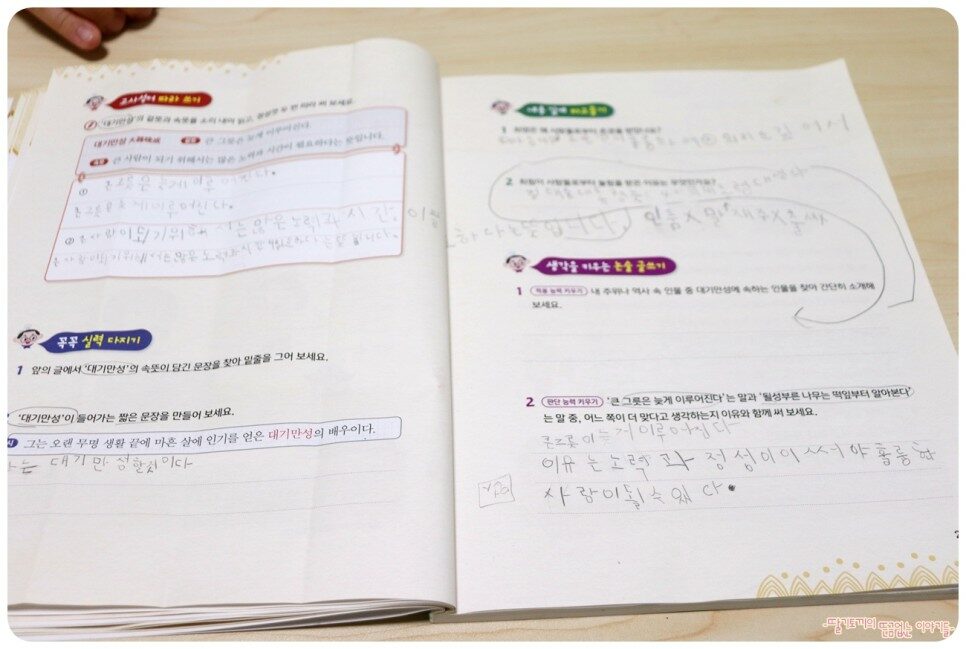 고사성어 따라 쓰기
'대기만성'의 겉뜻과 속뜻을 소리 내어 읽고, 정성껏 두 번 따라 써 보세요.
대기만성 大器晩成 겉뜻 큰 그릇은 늦게 이루어진다.
속뜻 큰 사람이 되기 위해서는 많은 노력과 시간이 필요하다는 뜻입니다.
① 큰그릇은 늦게 이루어진다.
큰그릇은 늦게이루어진다.
② 큰사람이되기위해서는많은노력과시간이필
꼭꼭 실력 다지기
1 앞의 글에서 '대기만성'의 속뜻이 담긴 문장을 찾아 밑줄을 그어 보세요.
'대기만성'이 들어가는 짧은 문장을 만들어 보세요.
그는 오랜 무명 생활 끝에 마흔 살에 인기를 얻은 대기만성의 배우이다.
나는 대기만성할것이다
내용 깊게 파고들기
1 최림은 왜 사람들로부터 존경을 받았나요?
2 최림이 사람들로부터 놀림을 받은 이유는 무엇인가요?
요하다는뜻입니다.
생각을 키우는 논술 글쓰기
1 적용 능력 키우기 내 주위나 역사 속 인물 중 대기만성에 속하는 인물을 찾아 간단히 소개해
보세요.
2 판단 능력 키우기 '큰 그릇은 늦게 이루어진다'는 말과 '될성부른 나무는 떡잎부터 알아본다'
는 말 중, 어느 쪽이 더 맞다고 생각하는지 이유와 함께 써 보세요.
큰그릇이늦게이루어진다
이유는노력과 정성이이써서야훌륭한
사람이될수있다.
딸기토끼의 뜬금없는 이야기들